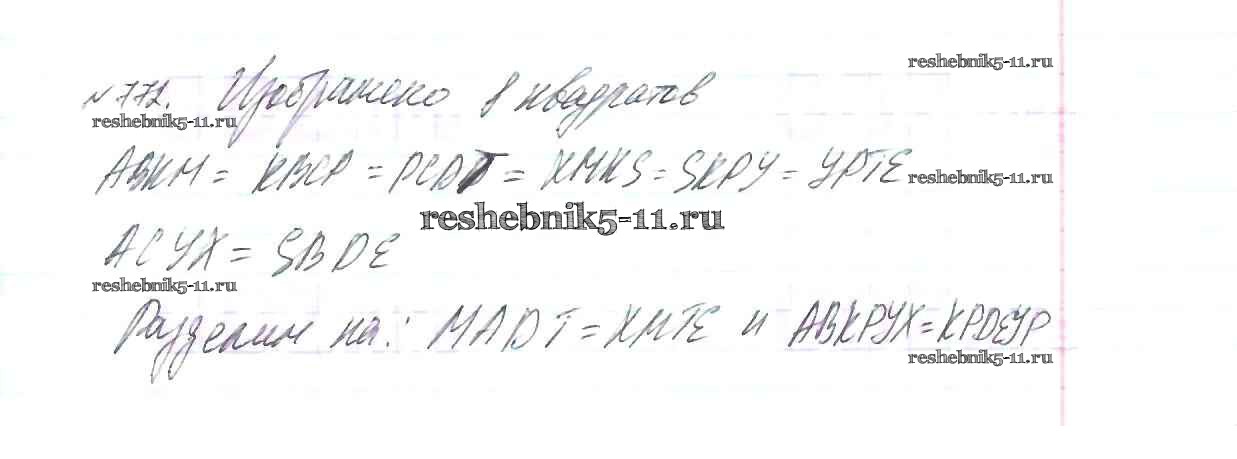 reshebnik5-11.ru
№772. Изображено 8 квадратов
reshebnik5-11.ru
АВКМ = КВСР = РСDT = ХМКS = SKPY = YPTE
reshebnik5-11.ru
reshebnik5-11.ru
АСУХ = SBDE
reshebnik5-11.ru
Разделим на: MADT = XMTE и ABKPYX = KPDEYP
reshebnik5-11.ru